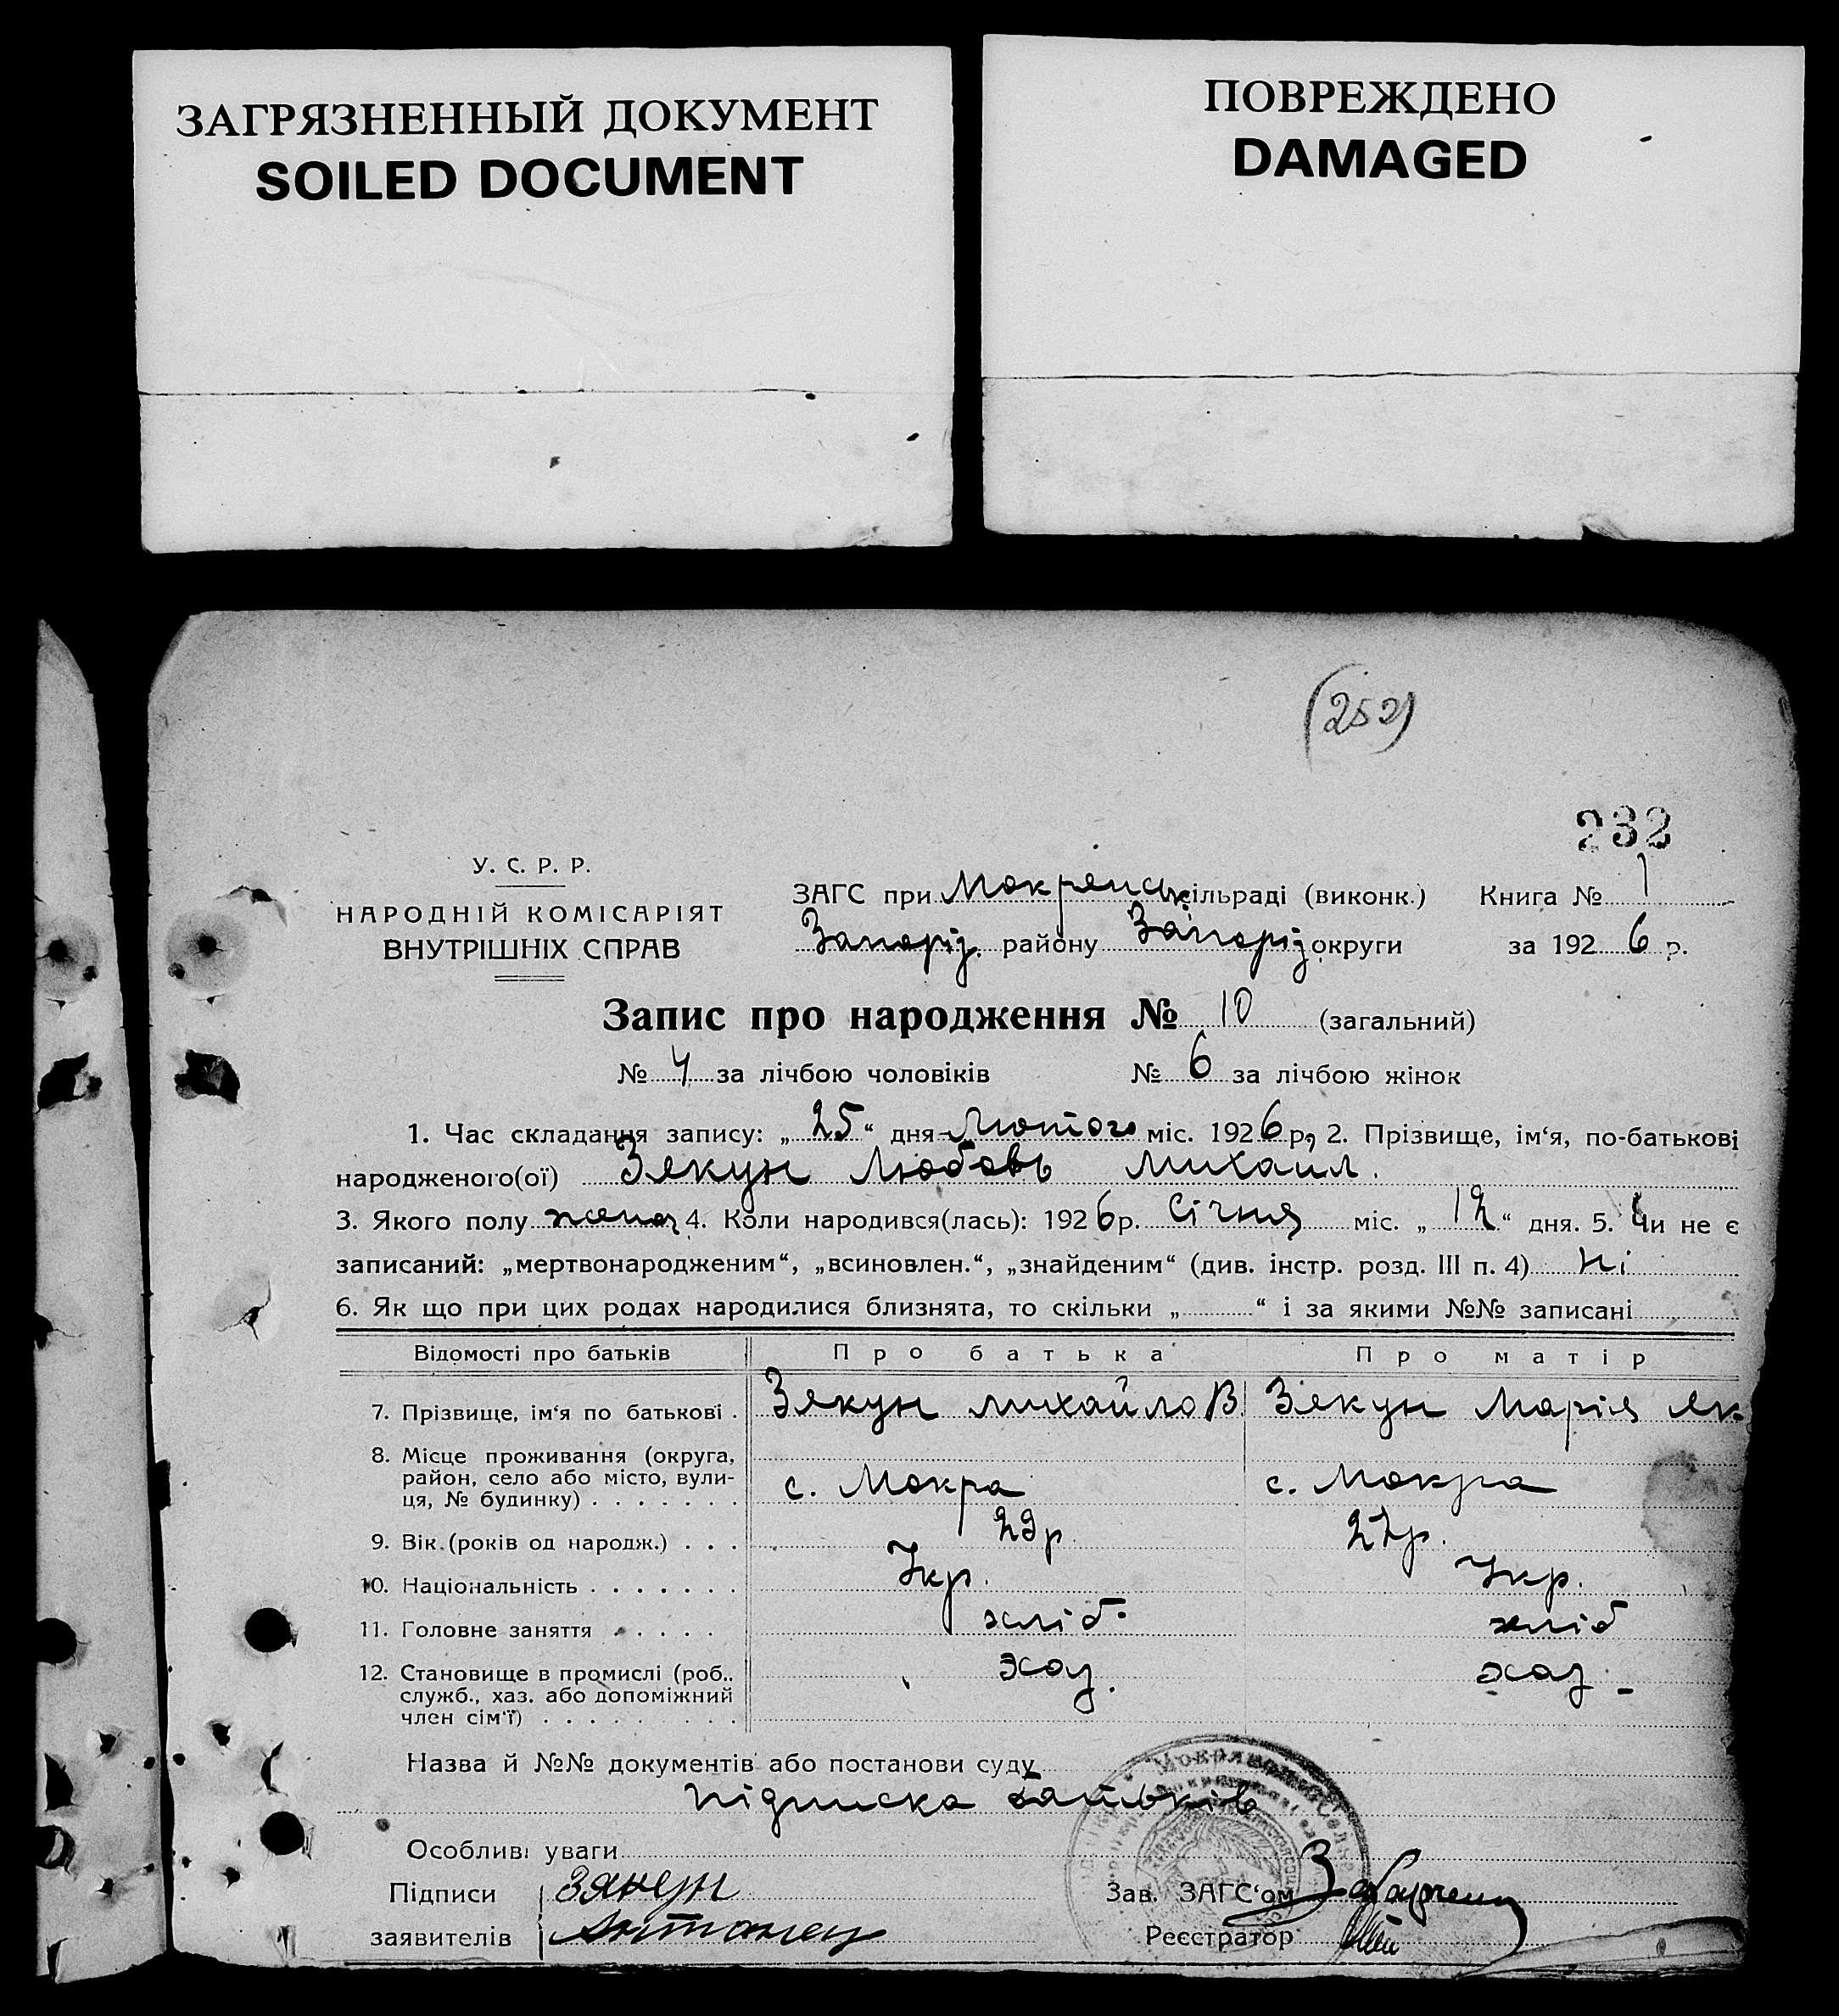 ЗАГРЯЗНЕННЫЙ ДОКУМЕНТ
SOILED DOCUMENT
ПОВРЕЖДЕНО
DAMAGED
(252)
232
У. С. Р. Р.
НАРОДНІЙ КОМІСАРІЯТ
ВНУТРІШНІХ СПРАВ
ЗАГС при Мокрянськ сільраді (виконк.) Книга № 1
Запоріз. району Запоріз округи за 1926 р.
Запис про народження № 10 (загальний)
№ 4 за лічбою чоловіків № 6 за лічбою жінок
1. Час складання запису: „25“ дня Лютого міс. 1926 р. 2. Прізвище, ім‘я, по-батькові
народженого(ої) Зякун Любовь Михайл.
3. Якого полу 4. Коли народився(лась): 1926 р. Січня міс. „12“ дня. 5. Чи не є
записаний: „мертвонародженим“, „всиновлен.“, „знайденим“ (див. інстр. розд. III п. 4) Ні
6. Як що при цих родах народилися близнята, то скільки „ “ і за якими №№ записані
Відомості про батьків Про батька Про матір
7. Прізвище, ім‘я по батькові . Зякун Михайло В. Зякун Марія Як
8. Місце проживання (округа,
район, село або місто, вули-
ця, № будинку) . . . . . . . с. Мокра с. Мокра
9. Вік (років од народж.) . . . 29р. 27р.
10. Національність . . . . . . . Укр. Укр.
11. Головне заняття . . . . . хліб. хліб
12. Становище в промислі (роб.,
служб., хаз. або допоміжний
член сім‘ї) . . . . . . . . . хаз. хаз.
Назва й №№ документів або постанови суду
підписка батьків
Особливі уваги
Підписи Зякун
заявителів Антонец
Зав. ЗАГС‘ом
Реєстратор